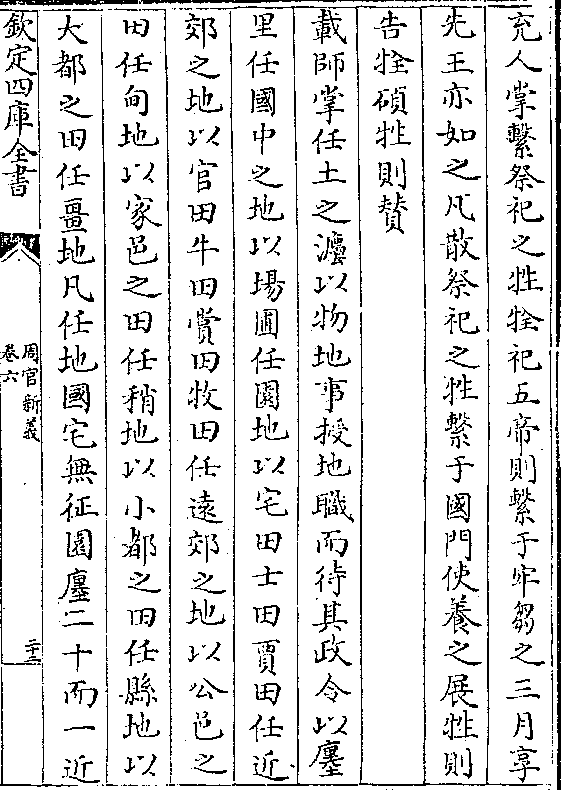 充人掌繫祭祀之牲牷祀五帝則繫于牢芻之三月享
先王亦如之凡散祭祀之牲繫于國門使養之展牲則
告牷碩牲則賛
載師掌任土之灋以物地事授地職而待其政令以廛
里任國中之地以場圃任園地以宅田士田賈田任近
郊之地以官田牛田賞田牧田任遠郊之地以公邑之
田任甸地以家邑之田任稍地以小都之田任縣地以
大都之田任畺地凡任地國宅無征園廛二十而一近
欽定四庫全書
周官新義
卷六
二十二